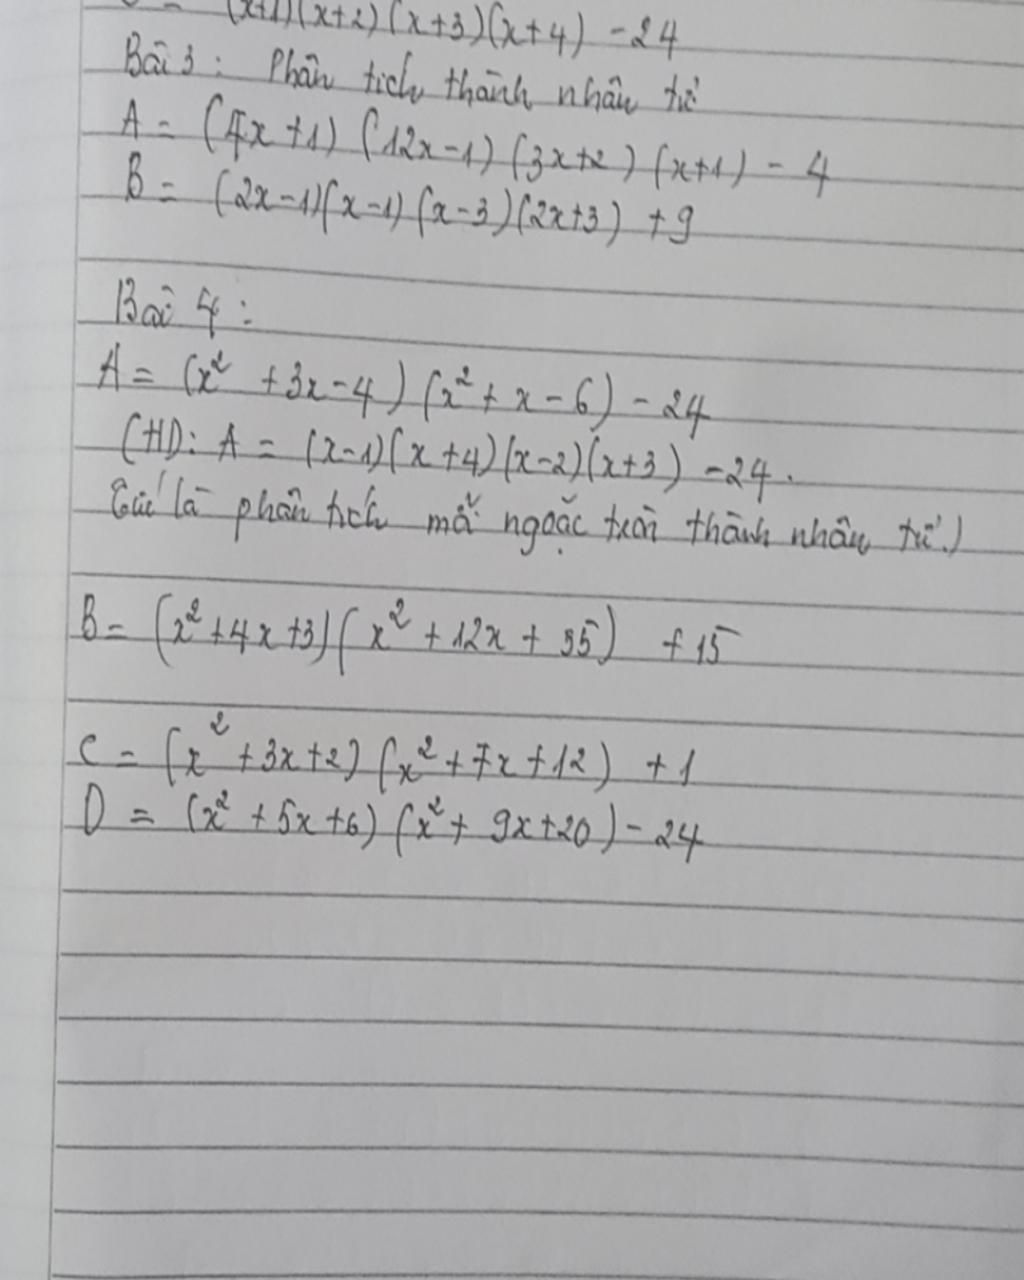 (x+1)(x+2)(x+3)(x+4) - 24
Bài 3 : Phân tích thành nhân tử
A = (4x+1) (12x-1) (3x+2) (x+1) - 4
B = (2x-1)(x-1) (x-3)(2x+3) + 9
Bài 4 :
A = (x² + 3x - 4) (x² + x - 6) - 24
(HD: A = (x-1)(x+4)(x-2)(x+3) - 24.
Tức là phân tích mỗi ngoặc tròn thành nhân tử.)
B = (x² + 4x + 3)(x² + 12x + 35) + 15
C = (x² + 3x + 2) (x² + 7x + 12) + 1
D = (x² + 5x + 6) (x² + 9x + 20) - 24